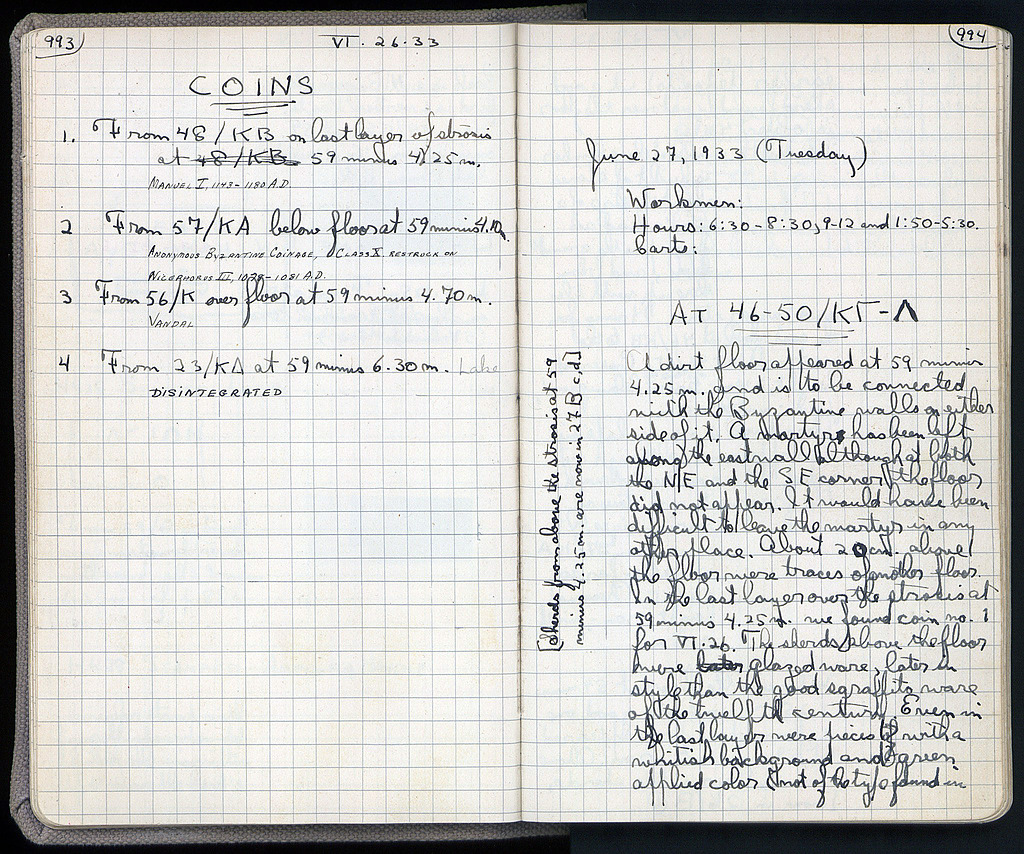 993
VI . 26.33
COINS
1. From 48/KB on last layer of strosis
at 48/KB 59 minus 4.25 m.
MANUEL I, 1143-1180 A.D.
2 From 57/KA below floor at 59 minus 4.10
ANONYMOUS BYZANTINE COINAGE, CLASS X. RESTRUCK ON
NICEPHORUS III, 1078-1081 A.D.
3 From 56/K over floor at 59 minus 4.70 m.
VANDAL
4 From 23/KΔ at 59 minus 6.30 m. Lake
DISINTEGRATED
994
June 27, 1933 (Tuesday)
Workmen:
Hours: 6:30-8:30, 9-12 and 1:50-5:30.
Carts:
AT 46-50/KΓ-Λ
A dirt floor appeared at 59 minus
4.25 m. and is to be connected
with the Byzantine walls on either
side of it. A martyr has been left
along the east wall although at both
the NE and the SE corner the floor
did not appear. It would have been
difficult to leave the martyr in any
other place. About 20 cm. above
the floor were traces of another floor.
In the last layer over the strosis at
59 minus 4.25 m. we found coin no. 1
for VI.26. The sherds above the floor
were later glazed ware, later in
style than the good sgraffito ware
of the twelfth century. Even in
the last layer were pieces with a
whitish background and green
applied color (not of the type found in
[Sherds from above the strosis at 59
minus 4.25 m. are now in 27 B c,d]